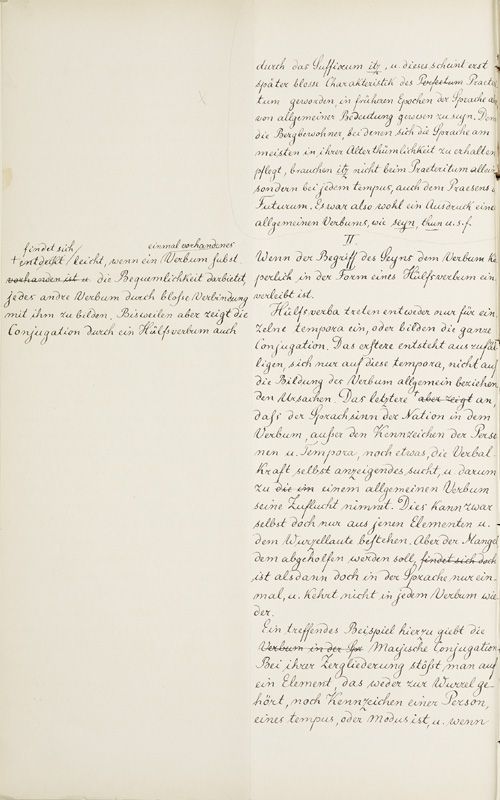 durch das Suffixum itz, u. dieses scheint erst
später blosse Charakteristik des Perfectum Praeteri
tum geworden, in früheren Epochen der Sprache aber
von allgemeiner Bedeutung gewesen zu seyn. Denn
die Bergbewohner, bei denen sich die Sprache am
meisten in ihrer Alterthümlichkeit zu erhalten
pflegt, brauchen itz nicht beim Praeteritum allein
sondern bei jedem tempus, auch dem Praesens u
Futurum. Es war also wohl ein Ausdruck eines
allgemeinen Verbums, wie seyn, thun u.s.f.
II
Wenn der Begriff des Seyns dem Verbum kör
perlich in der Form eines Hülfsverbum ein
verleibt ist.
Hülfsverba treten entweder nur für ein
zelne tempora ein, oder bilden die ganze
Conjugation. Das erstere entsteht aus zufäl
ligen, sich nur auf diese tempora, nicht auf
die Bildung des Verbum allgemein beziehen
den Ursachen. Das letztere + aber zeigt an,
daß der Sprachsinn der Nation in dem
Verbum, außer den Kennzeichen der Perso
nen u. Tempora, noch etwas, die Verbal-
Kraft selbst anzeigendes, sucht, u. darum
zu die im einem allgemeinen Verbum
seine Zuflucht nimmt. Dies kann zwar
selbst doch nur aus jenen Elementen u.
dem Wurzellaute bestehen. Aber der Mangel
dem abgeholfen werden soll, findet sich doch
ist alsdann doch in der Sprache nur ein-
mal, u. kehrt nicht in jedem Verbum wie
der.
Ein treffendes Beispiel hierzu giebt die
Verbum in der Spr Mayische Conjugation.
Bei ihrer Zergliederung stößt man auf
ein Element, das weder zur Wurzel ge-
hört, noch Kennzeichen einer Person,
eines tempus, oder Modus ist, u. wenn
findet sich einmal vorhandenes
+ entdeckt leicht, wenn ein Verbum subst.
vorhanden ist u. die Bequemlichkeit darbietet,
jedes andre Verbum durch bloße Verbindung
mit ihm zu bilden. Bisweilen aber zeigt die
Conjugation durch ein Hülfsverbum auch